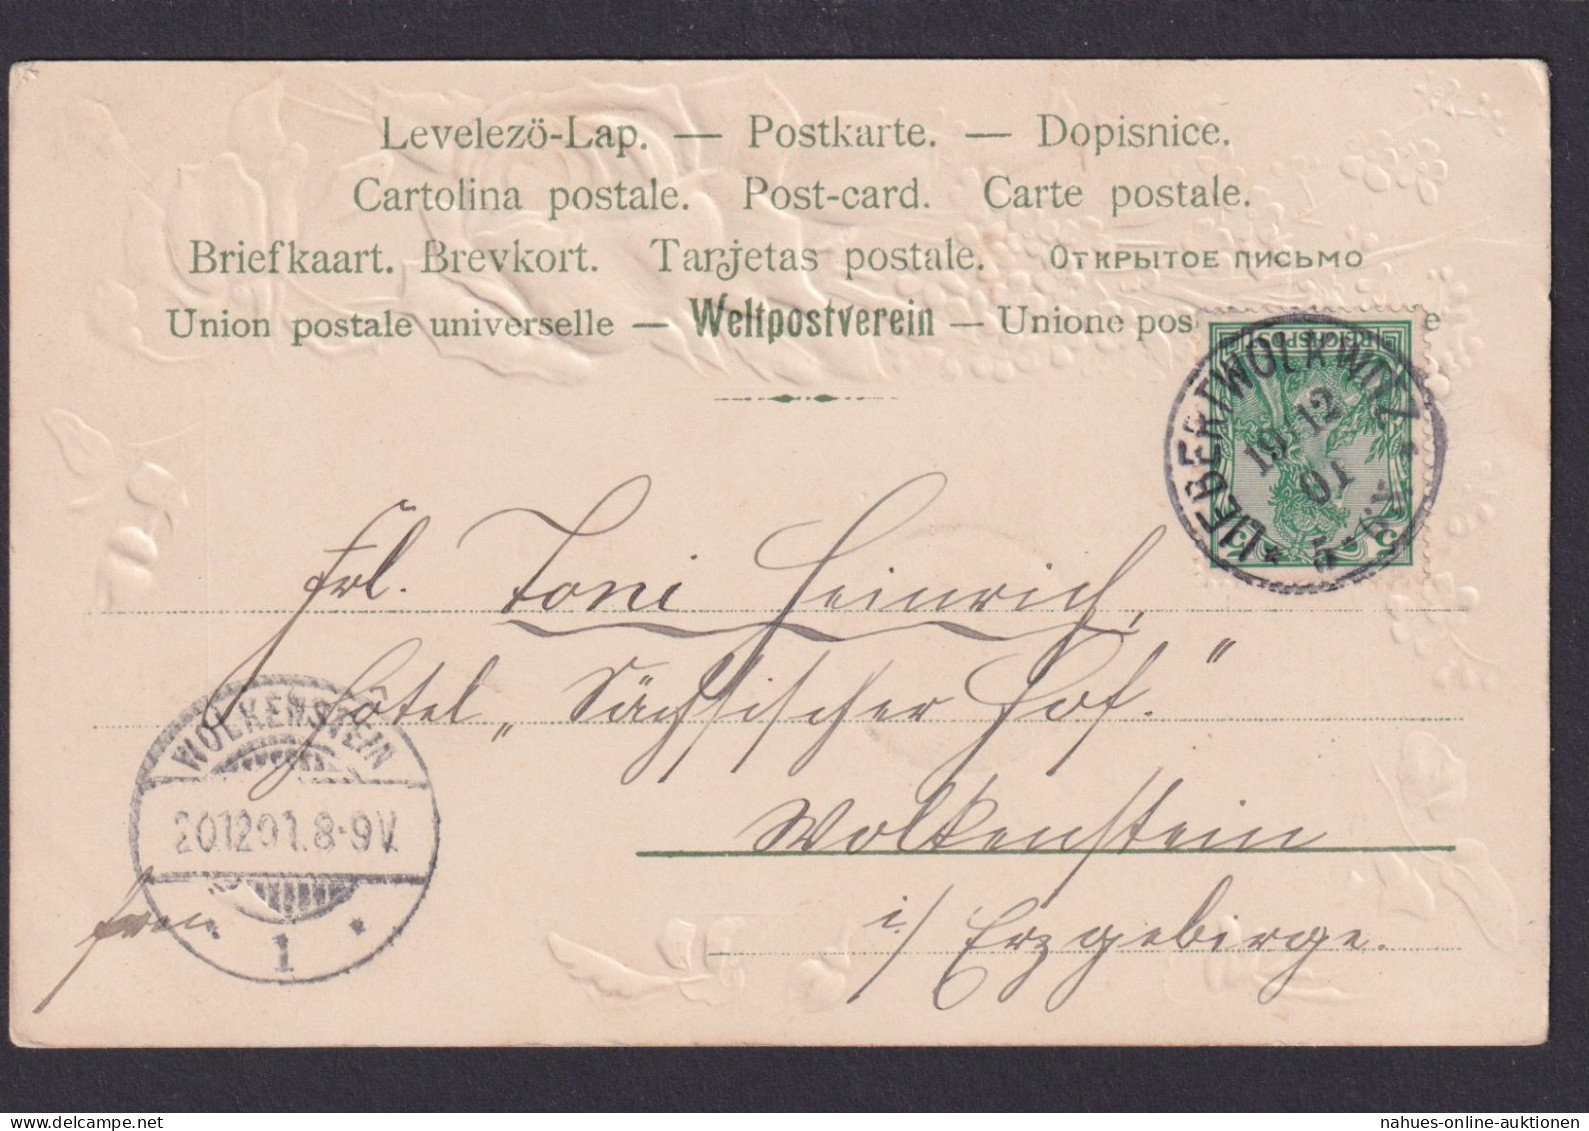 Levelezö-Lap. — Postkarte. — Dopisnice.
Cartolina postale. Post-card. Carte postale.
Briefkaart. Brevkort. Tarjetas postale. Открытое письмо
Union postale universelle — Weltpostverein — Unione pos e
REICHSPOST
5 5
LIEBERTWOLKWITZ
19/12
01
5-6N
Frl. Toni Heinrich,
Hotel „Sächsischer Hof."
Wolkenstein
i/ Erzgebirge.
WOLKENSTEIN
20.12.01.8-9V.
1
fren.
www.delcampe.net
nahues-online-auktionen